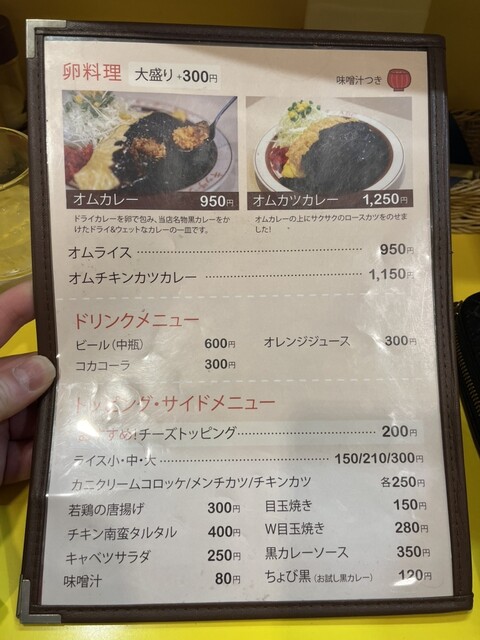 卵料理 大盛り+300円
味噌汁つき
オムカレー 950円
ドライカレーを卵で包み、当店名物黒カレーをか
けたドライ&ウェットなカレーの一皿です。
オムカツカレー 1,250円
オムカレーの上にサクサクのロースカツをのせま
した!
オムライス 950円
オムチキンカツカレー 1,150円
ドリンクメニュー
ビール(中瓶) 600円
オレンジジュース 300円
コカコーラ 300円
トッピング・サイドメニュー
おすすめ!チーズトッピング 200円
ライス小・中・大 150/210/300円
カニクリームコロッケ/メンチカツ/チキンカツ 各250円
若鶏の唐揚げ 300円
目玉焼き 150円
チキン南蛮タルタル 400円
W目玉焼き 280円
キャベツサラダ 250円
黒カレーソース 350円
味噌汁 80円
ちょび黒(お試し黒カレー) 120円